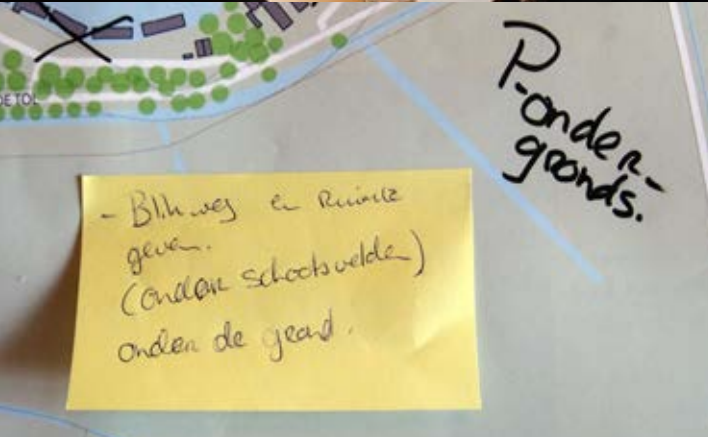 DE TOL
P-onder-
gronds.
- Blik weg en Ruimte
geven.
(onder schootsvelden)
onder de grond.